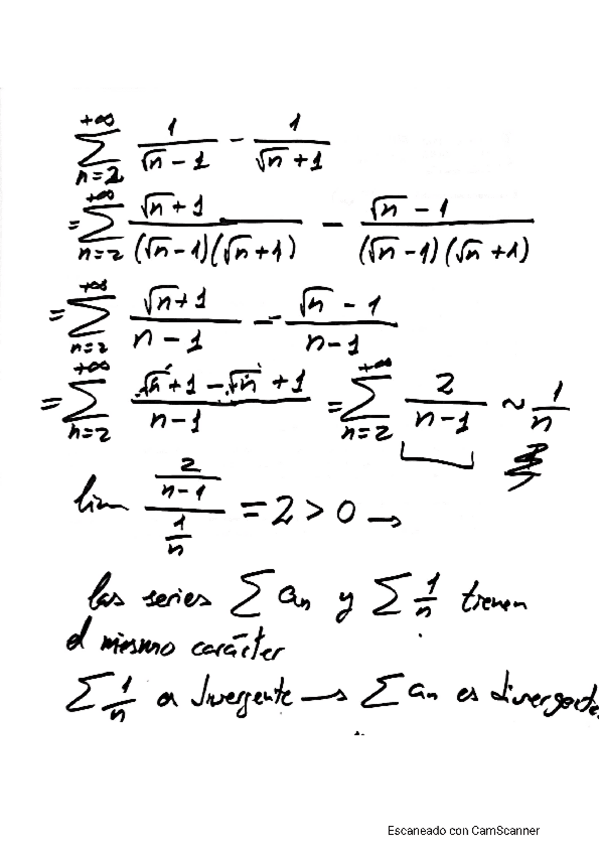 +∞ ∑ n=2 1/(√n - 1) - 1/(√n + 1)
= +∞ ∑ n=2 (√n + 1)/((√n - 1)(√n + 1)) - (√n - 1)/((√n - 1)(√n + 1))
= +∞ ∑ n=2 (√n + 1)/(n - 1) - (√n - 1)/(n - 1)
= +∞ ∑ n=2 (√n + 1 - √n + 1)/(n - 1) = +∞ ∑ n=2 2/(n - 1) ~ 1/n
lim (2/(n - 1))/(1/n) = 2 > 0 →
las series ∑ an y ∑ 1/n tienen
el mismo carácter
∑ 1/n es divergente → ∑ an es divergente.
Escaneado con CamScanner